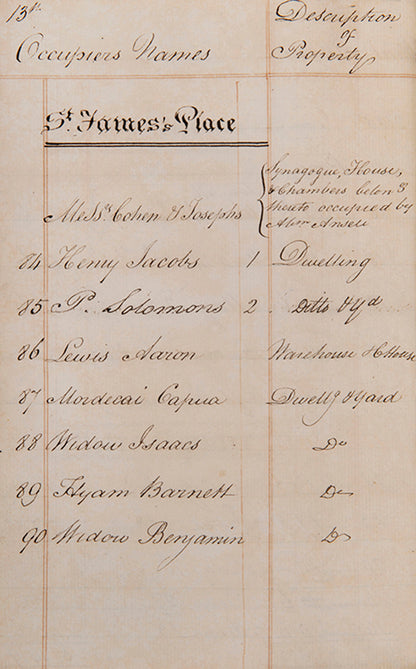 13th
Description
of
Occupiers Names Property
St. James's Place
Synagogue, House,
& Chambers belong
thereto occupied by
Messrs Cohen & Josephs Abrm Ansell
84 Henry Jacobs 1 Dwelling
85 P. Solomons 2 Ditto & Yd
86 Lewis Aaron Warehouse & House
87 Mordecai Capua Dwellg & Yard
88 Widow Isaacs Do
89 Hyam Barnett Do
90 Widow Benjamin Do